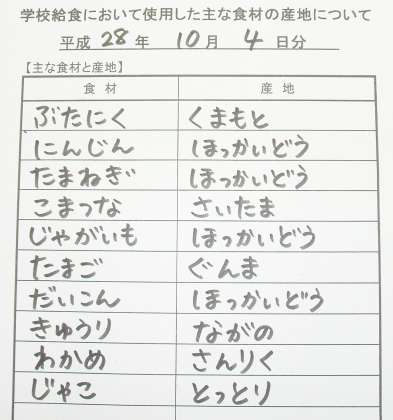 学校給食において使用した主な食材の産地について
平成 28 年 10月 4 日分
【主な食材と産地】
食 材 産 地
ぶたにく くまもと
にんじん ほっかいどう
たまねぎ ほっかいどう
こまつな さいたま
じゃがいも ほっかいどう
たまご ぐんま
だいこん ほっかいどう
きゅうり ながの
わかめ さんりく
じゃこ とっとり